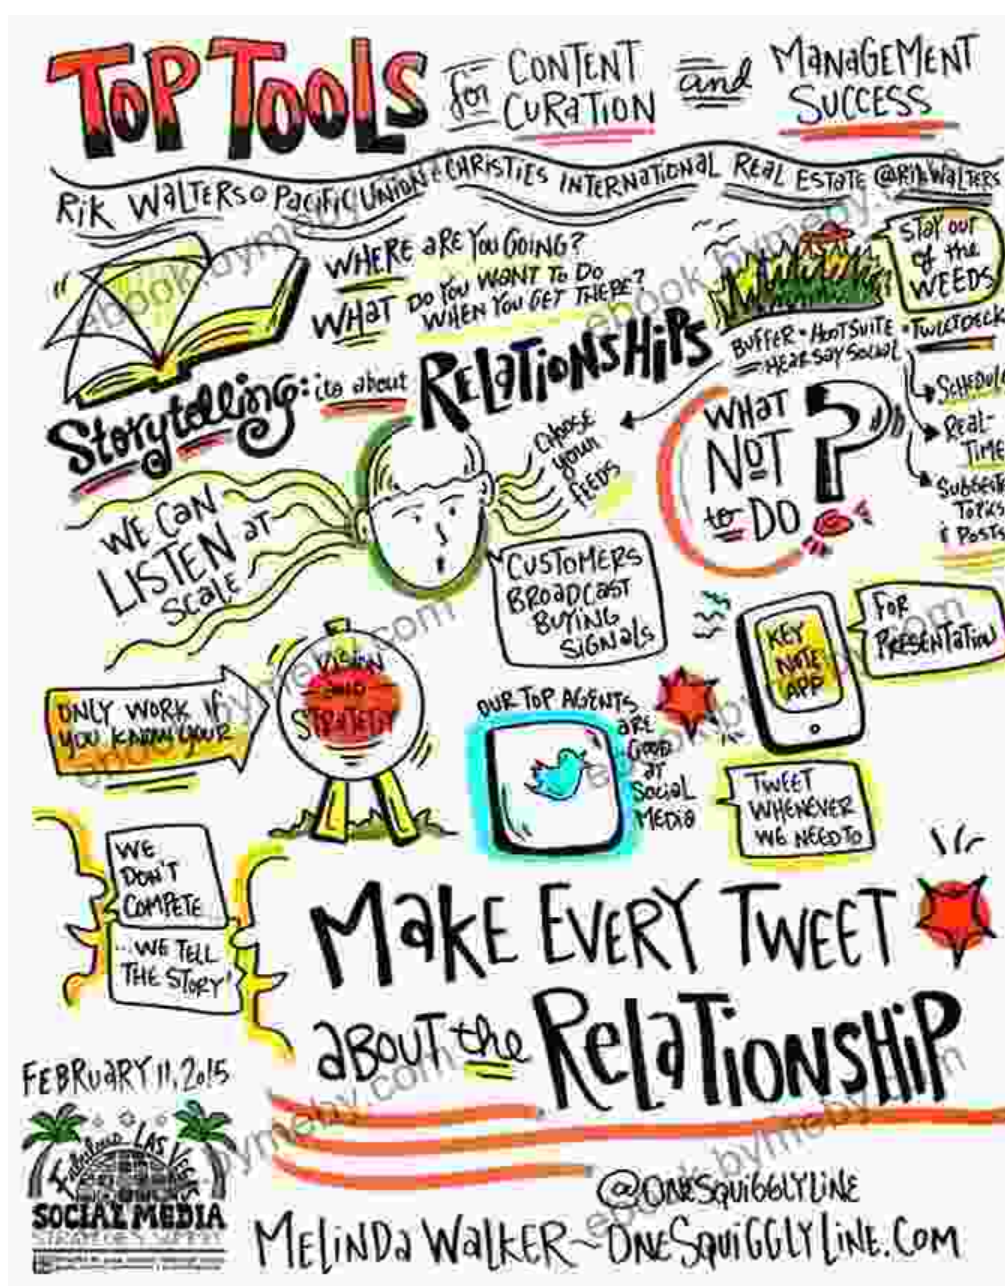 TOP TOOLS for CONTENT CURATION and MANAGEMENT SUCCESS
RIK WALTERS @ PACIFIC UNION & CHRISTIES INTERNATIONAL REAL ESTATE @RIKWALTERS
WHERE ARE YOU GOING?
WHAT DO YOU WANT TO DO
WHEN YOU GET THERE?
STAY OUT
of the
WEEDS
BUFFER • HOOTSUITE • TWEETDECK
HEARSAY SOCIAL
SCHEDULE
REAL-
TIME
SUGGEST
TOPICS
& POSTS
Storytelling: its about RELATIONSHIPS
CHOOSE
your
FEEDS
WHAT
NOT
to DO ?
WE CAN
LISTEN AT
SCALE
CUSTOMERS
BROADCAST
BUYING
SIGNALS
KEY
NOTE
APP
FOR
PRESENTATION
ONLY WORK IF
YOU KNOW YOUR
VISION
AND
STRATEGY
OUR TOP AGENTS
ARE
GOOD
AT
SOCIAL
MEDIA
TWEET
WHENEVER
WE NEED TO
WE
DON'T
COMPETE
...WE TELL
THE STORY!
MAKE EVERY TWEET
ABOUT the RELATIONSHIP
FEBRUARY 11, 2015
Fabulous LAS VEGAS
SOCIAL MEDIA
STRATEGIES SUMMIT
@ONESQUIGGLYLINE
MELINDA WALKER ~ ONESQUIGGLYLINE.COM
ebook.bymeby.com
ebook.bymeby.com
ebook.bymeby.com
ebook.bymeby.com
bymeby.com
ebook.bymeby.com